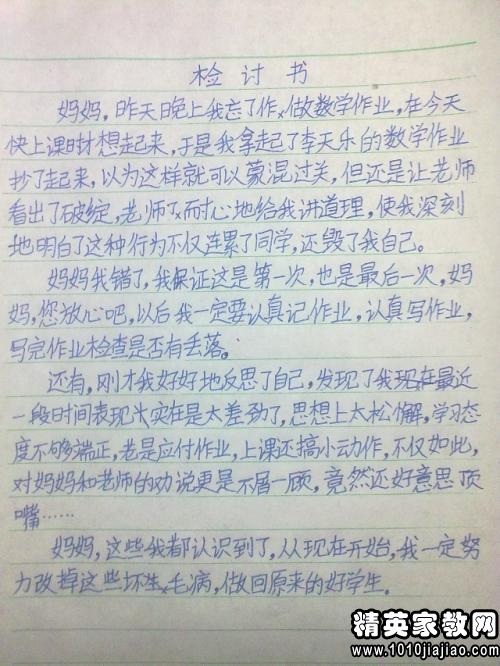 检讨书
妈妈，昨天晚上我忘了作，做数学作业，在今天
快上课时才想起来，于是我拿起了李天乐的数学作业
抄了起来，以为这样就可以蒙混过关，但还是让老师
看出了破绽，老师了耐心地给我讲道理，使我深刻
地明白了这种行为不仅连累了同学，还毁了我自己。
妈妈我错了，我保证这是第一次，也是最后一次，妈
妈，您放心吧，以后我一定要认真记作业，认真写作业，
写完作业检查是否有丢落。
还有，刚才我好好地反思了自己，发现了我现在最近
一段时间表现实在是大差劲了，思想上太松懈，学习态
度不够端正，老是应付作业，上课还搞小动作，不仅如此，
对妈妈和老师的劝说更是不屑一顾，竟然还好意思顶
嘴……
妈妈，这些我都认识到了，从现在开始，我一定努
力改掉这些坏毛病，做回原来的好学生。
精英家教网
www.1010jiajiao.com